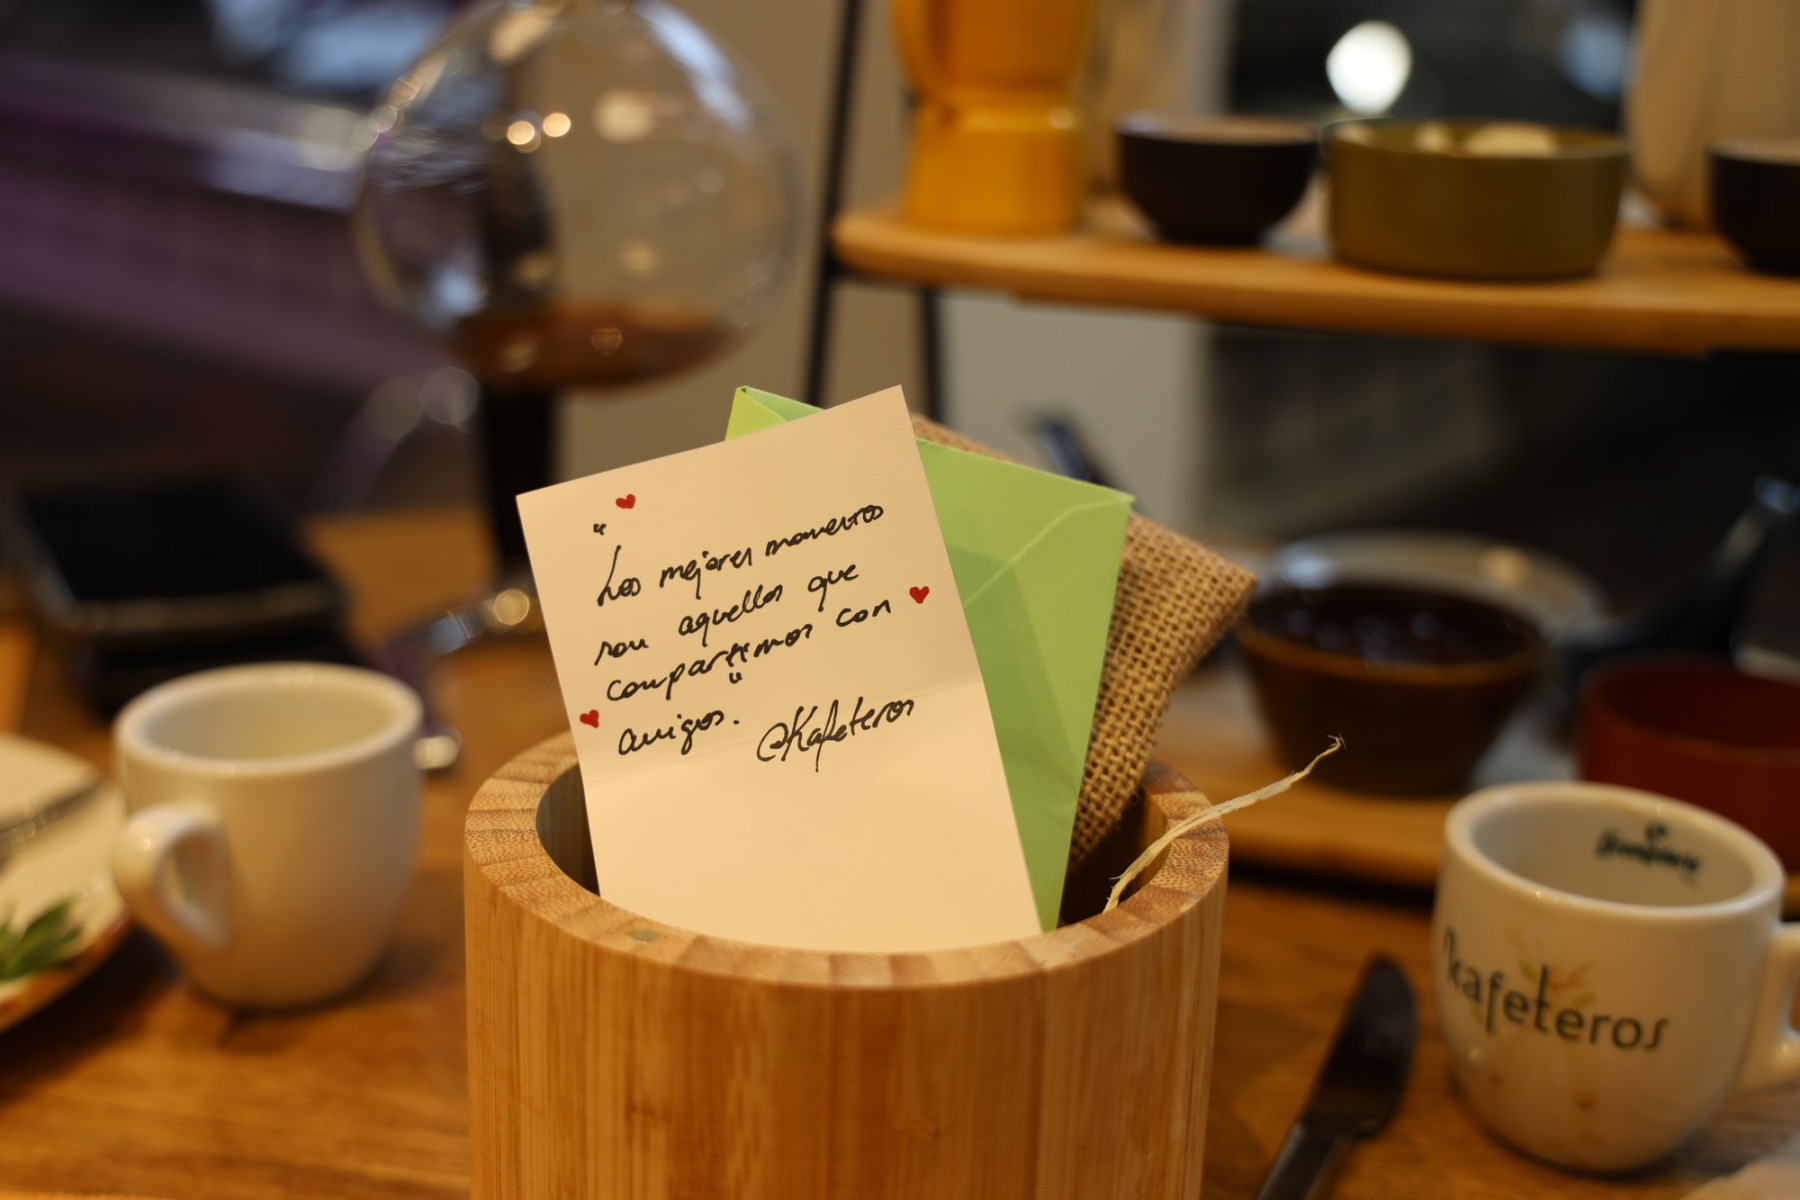 "
Los mejores momentos
son aquellos que
compartimos con
amigos."
@Kafeteros
kafeteros